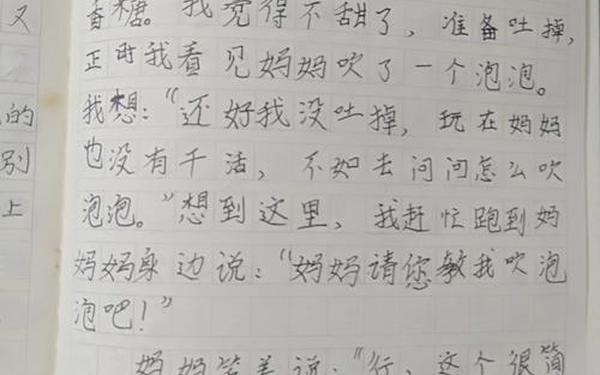 又
香糖。我觉得不甜了，准备吐掉，
正时我看见妈妈吹了一个泡泡。
我想：“还好我没吐掉，玩在妈妈
的
也没有干活，不如去问问怎么吹
别
泡泡。”想到这里，我赶忙跑到妈
上
妈妈身边说：“妈妈请您教我吹泡
泡吧！”
妈妈笑着说：“行，这个很简